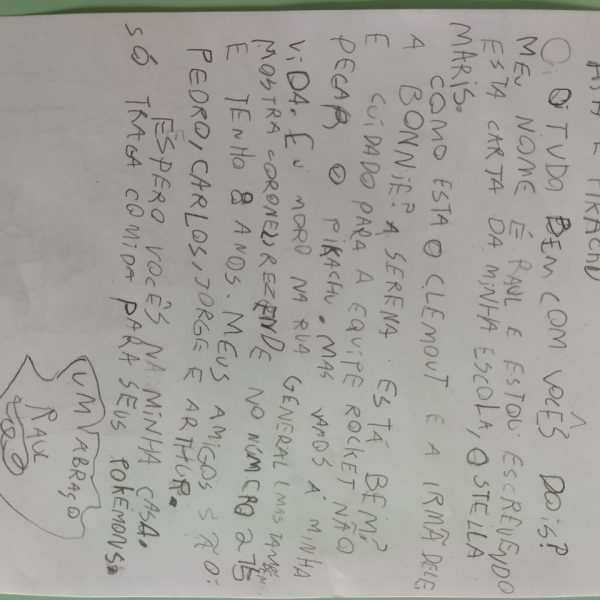 ASH E PIKACHU
OI TUDO BEM COM VOCÊS DOIS?
MEU NOME É RAUL E ESTOU ESCREVENDO
ESTA CARTA DA MINHA ESCOLA, O STELLA
MARIS.
COMO ESTÁ O CLEMOUT E A IRMÃ DELE
A BONNIE? A SERENA ESTÁ BEM?
E CUIDADO PARA A EQUIPE ROCKET NÃO
PEGAR O PIKACHU. MAS VAMOS Á MINHA
VIDA. EU MORO NA RUA GENERAL (MAS TAMBÉM
MOSTRA CORONEL) REZENDE NO NÚMERO 275
E TENHO 8 ANOS. MEUS AMIGOS SÃO:
PEDRO, CARLOS, JORGE E ARTHUR.
ESPERO VOCÊS NA MINHA CASA.
SÓ TRAGA COMIDA PARA SEUS POKÉMONS.
UM ABRAÇO
RAUL